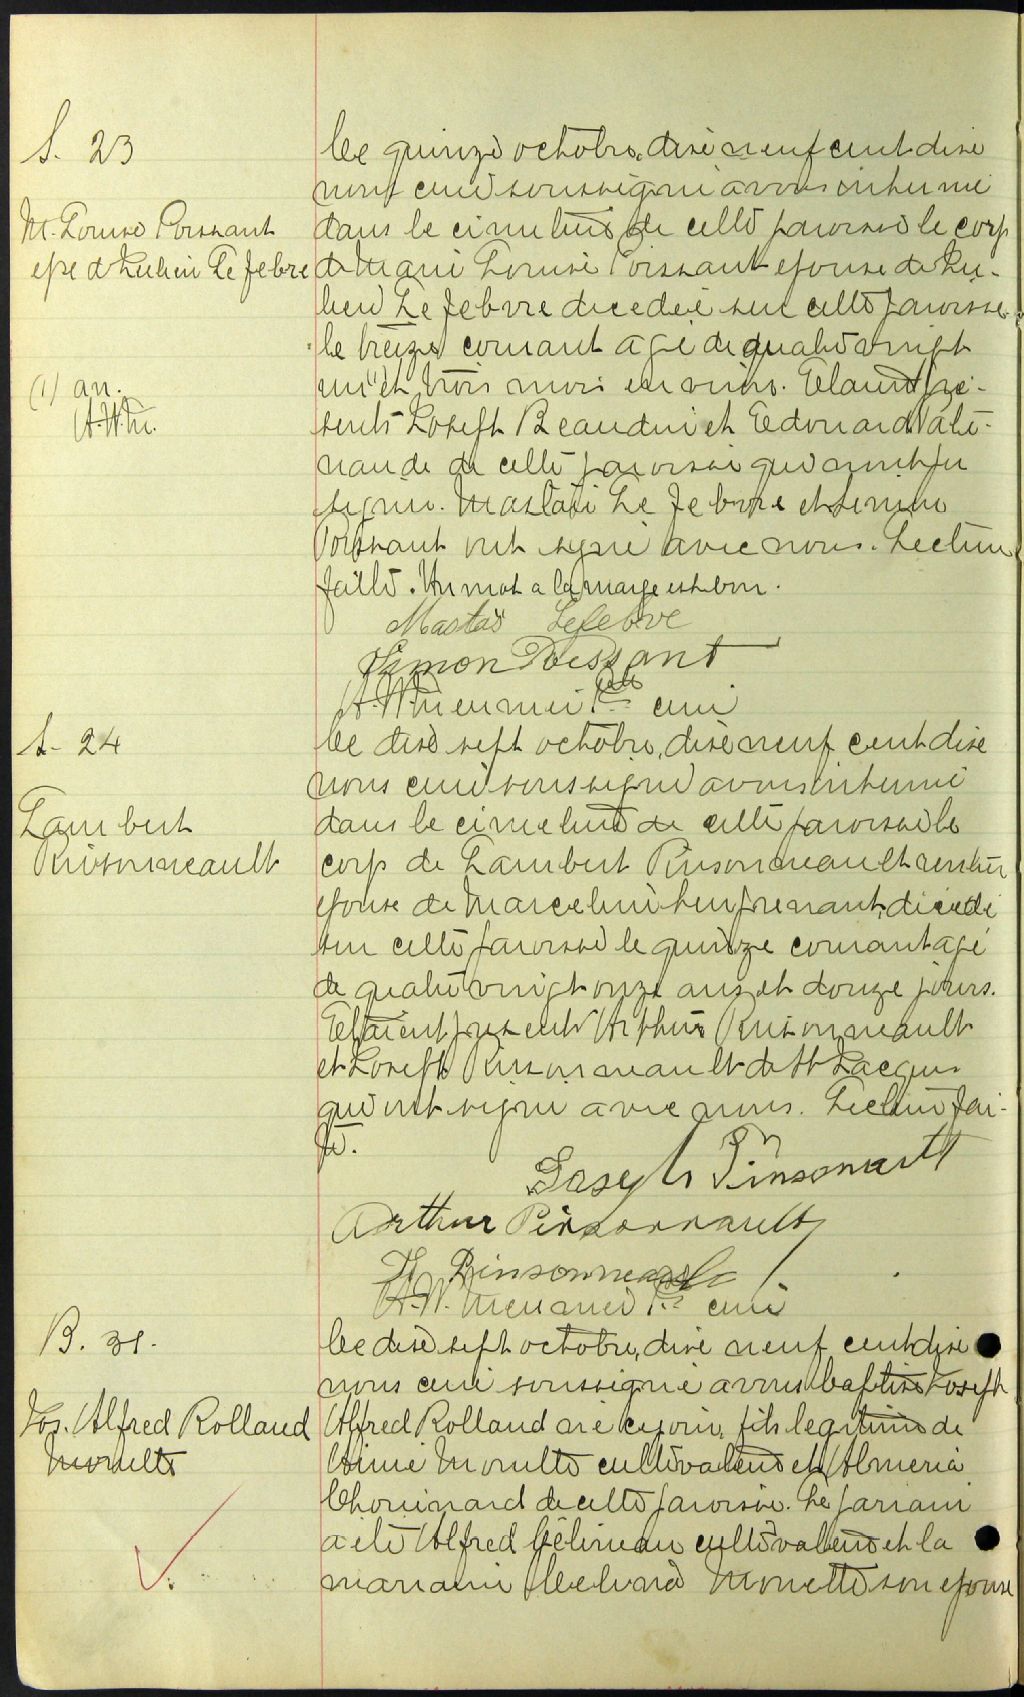 S. 23
M. Louise Poissant
epse d Julien Lefebre
(1) an.
A.W.M.
Ce quinze octobre, dixe neuf cent dixe
nous curé soussigné avons inhumé
dans le cimetière de cette paroisse le corp
de Marie Louise Poissant epouse de Ju-
lien Lefebvre décédée sur cette paroisse
le treize courant agé de quatre vingt
un (1) et trois mois environ. Etaient pré-
sents Joseph Beaudin et Edouard Paté-
naude de cette paroisse qui n'ont pu
signer. Mastaï Lefebvre et Simon
Poissant ont signé avec nous. Lecture
faite. Un mot a la marge est bon.
Mastaï Lefebvre
Simon Poissant
A. W. curé
S- 24
Lambert
Pinsonneault
Ce dixe sept octobre, dixe neuf cent dixe
nous curé soussigné avons inhumé
dans le cimetière de cette paroisse le
corp de Lambert Pinsonneault rentier
epoux de Marceline décédé
sur cette paroisse le quinze courant agé
de quatre vingt onze ans et douze jours.
Etaient présents Arthur Pinsonneault
et Joseph Pinsonneault de St Jacques
qui ont signé avec nous. Lecture fai-
te.
Joseph Pinsonault
Arthur Pinsonnault
H Pinsonneault
A. W. curé
B. 31.
Jos. Alfred Rolland
Monette
Ce dixe sept octobre, dixe neuf cent dixe
nous curé soussigné avons baptisé Joseph
Alfred Rolland né ce jour, fils legitime de
Aimé Monette cultivateur et Almeria
Chouinard de cette paroisse. Le parrain
a été Alfred Gélineau cultivateur et la
marraine Celina Monette son epouse